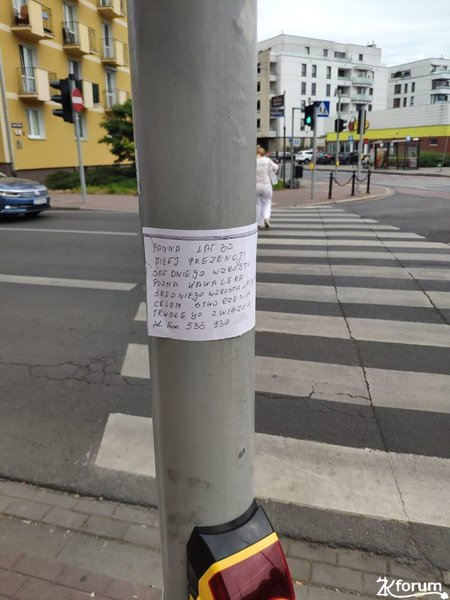 PANNA LAT 50
MIŁEJ PREZENCJI
ŚREDNIEGO WZROSTU
POZNA KAWALERA
ŚREDNIEGO WZROSTU
CELEM STWORZENIA
TRWAŁEGO ZWIĄZKU
535 939
2Kforum